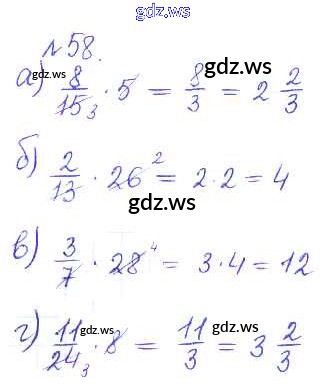 gdz.ws
№58.
а) 8/15 3 · 5 = 8/3 = 2 2/3
gdz.ws gdz.ws
б) 2/13 · 26 2 = 2·2 = 4
gdz.ws
в) 3/7 · 28 4 = 3·4 = 12
gdz.ws
г) 11/24 3 · 8 = 11/3 = 3 2/3
gdz.ws gdz.ws